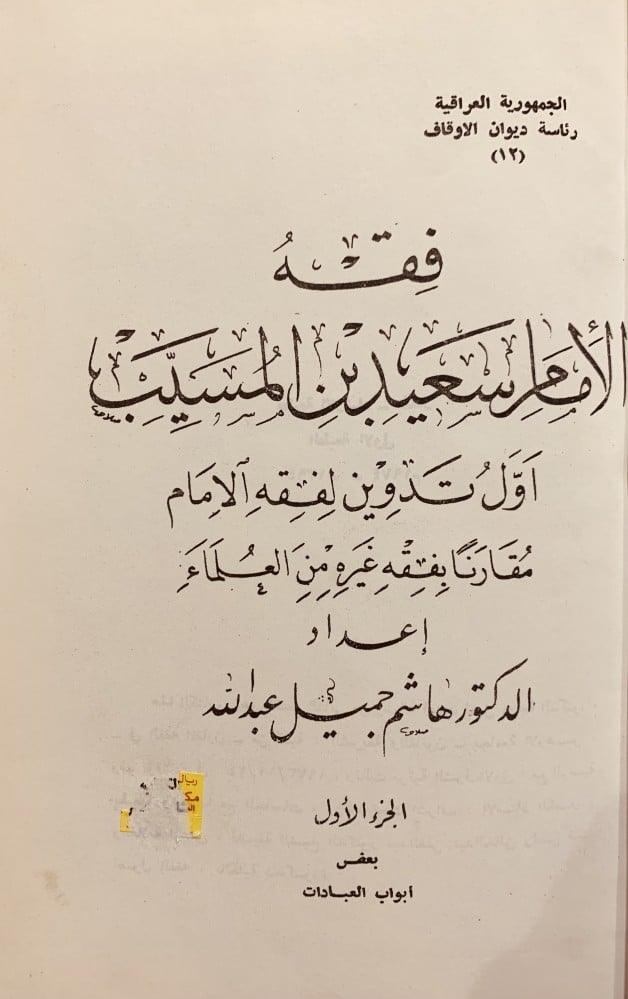 الجمهورية العراقية
رئاسة ديوان الاوقاف
(١٢)
فِقْهُ
الإمَامِ سَعَيدِ بْنِ المُسَيَّبِ
اَوَّلُ تَدْوِين لِفِقهِ الامَام
مُقَارَنًا بِفِقْهِ غَيَرهِ مِنَ العُلَمَاءَ
إعداد
الدكتور هاشم جميل عبدالله
الجزء الأول
بعض
أبواب العبادات